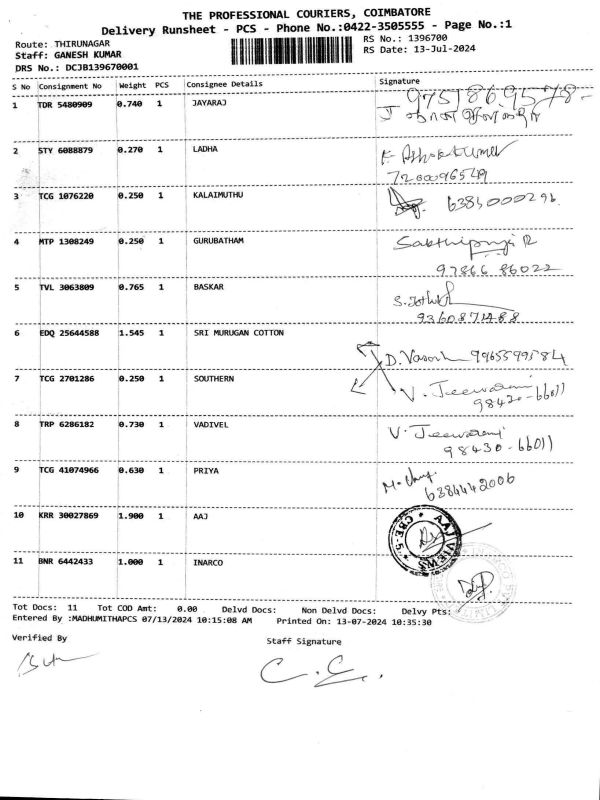 THE PROFESSIONAL COURIERS, COIMBATORE
Delivery Runsheet - PCS - Phone No.:0422-3505555 - Page No.:1
Route: THIRUNAGAR RS No.: 1396700
Staff: GANESH KUMAR RS Date: 13-Jul-2024
DRS No.: DCJB139670001
S No Consignment No Weight PCS Consignee Details Signature
1 TDR 5480909 0.740 1 JAYARAJ 9751869578
2 STY 6088879 0.270 1 LADHA
3 TCG 1076220 0.250 1 KALAIMUTHU
4 MTP 1308249 0.250 1 GURUBATHAM
97866 86022
5 TVL 3063809 0.765 1 BASKAR
6 EDQ 25644588 1.545 1 SRI MURUGAN COTTON
D. 9965599584
7 TCG 2701286 0.250 1 SOUTHERN V.
98420-66011
8 TRP 6286182 0.730 1 VADIVEL V.
98430-66011
9 TCG 41074966 0.630 1 PRIYA
6384442006
10 KRR 30027869 1.900 1 AAJ
AAJ VIEWS CBE-5
11 BNR 6442433 1.000 1 INARCO
Tot Docs: 11 Tot COD Amt: 0.00 Delvd Docs: Non Delvd Docs: Delvy Pts:
Entered By :MADHUMITHAPCS 07/13/2024 10:15:08 AM Printed On: 13-07-2024 10:35:30
Verified By Staff Signature